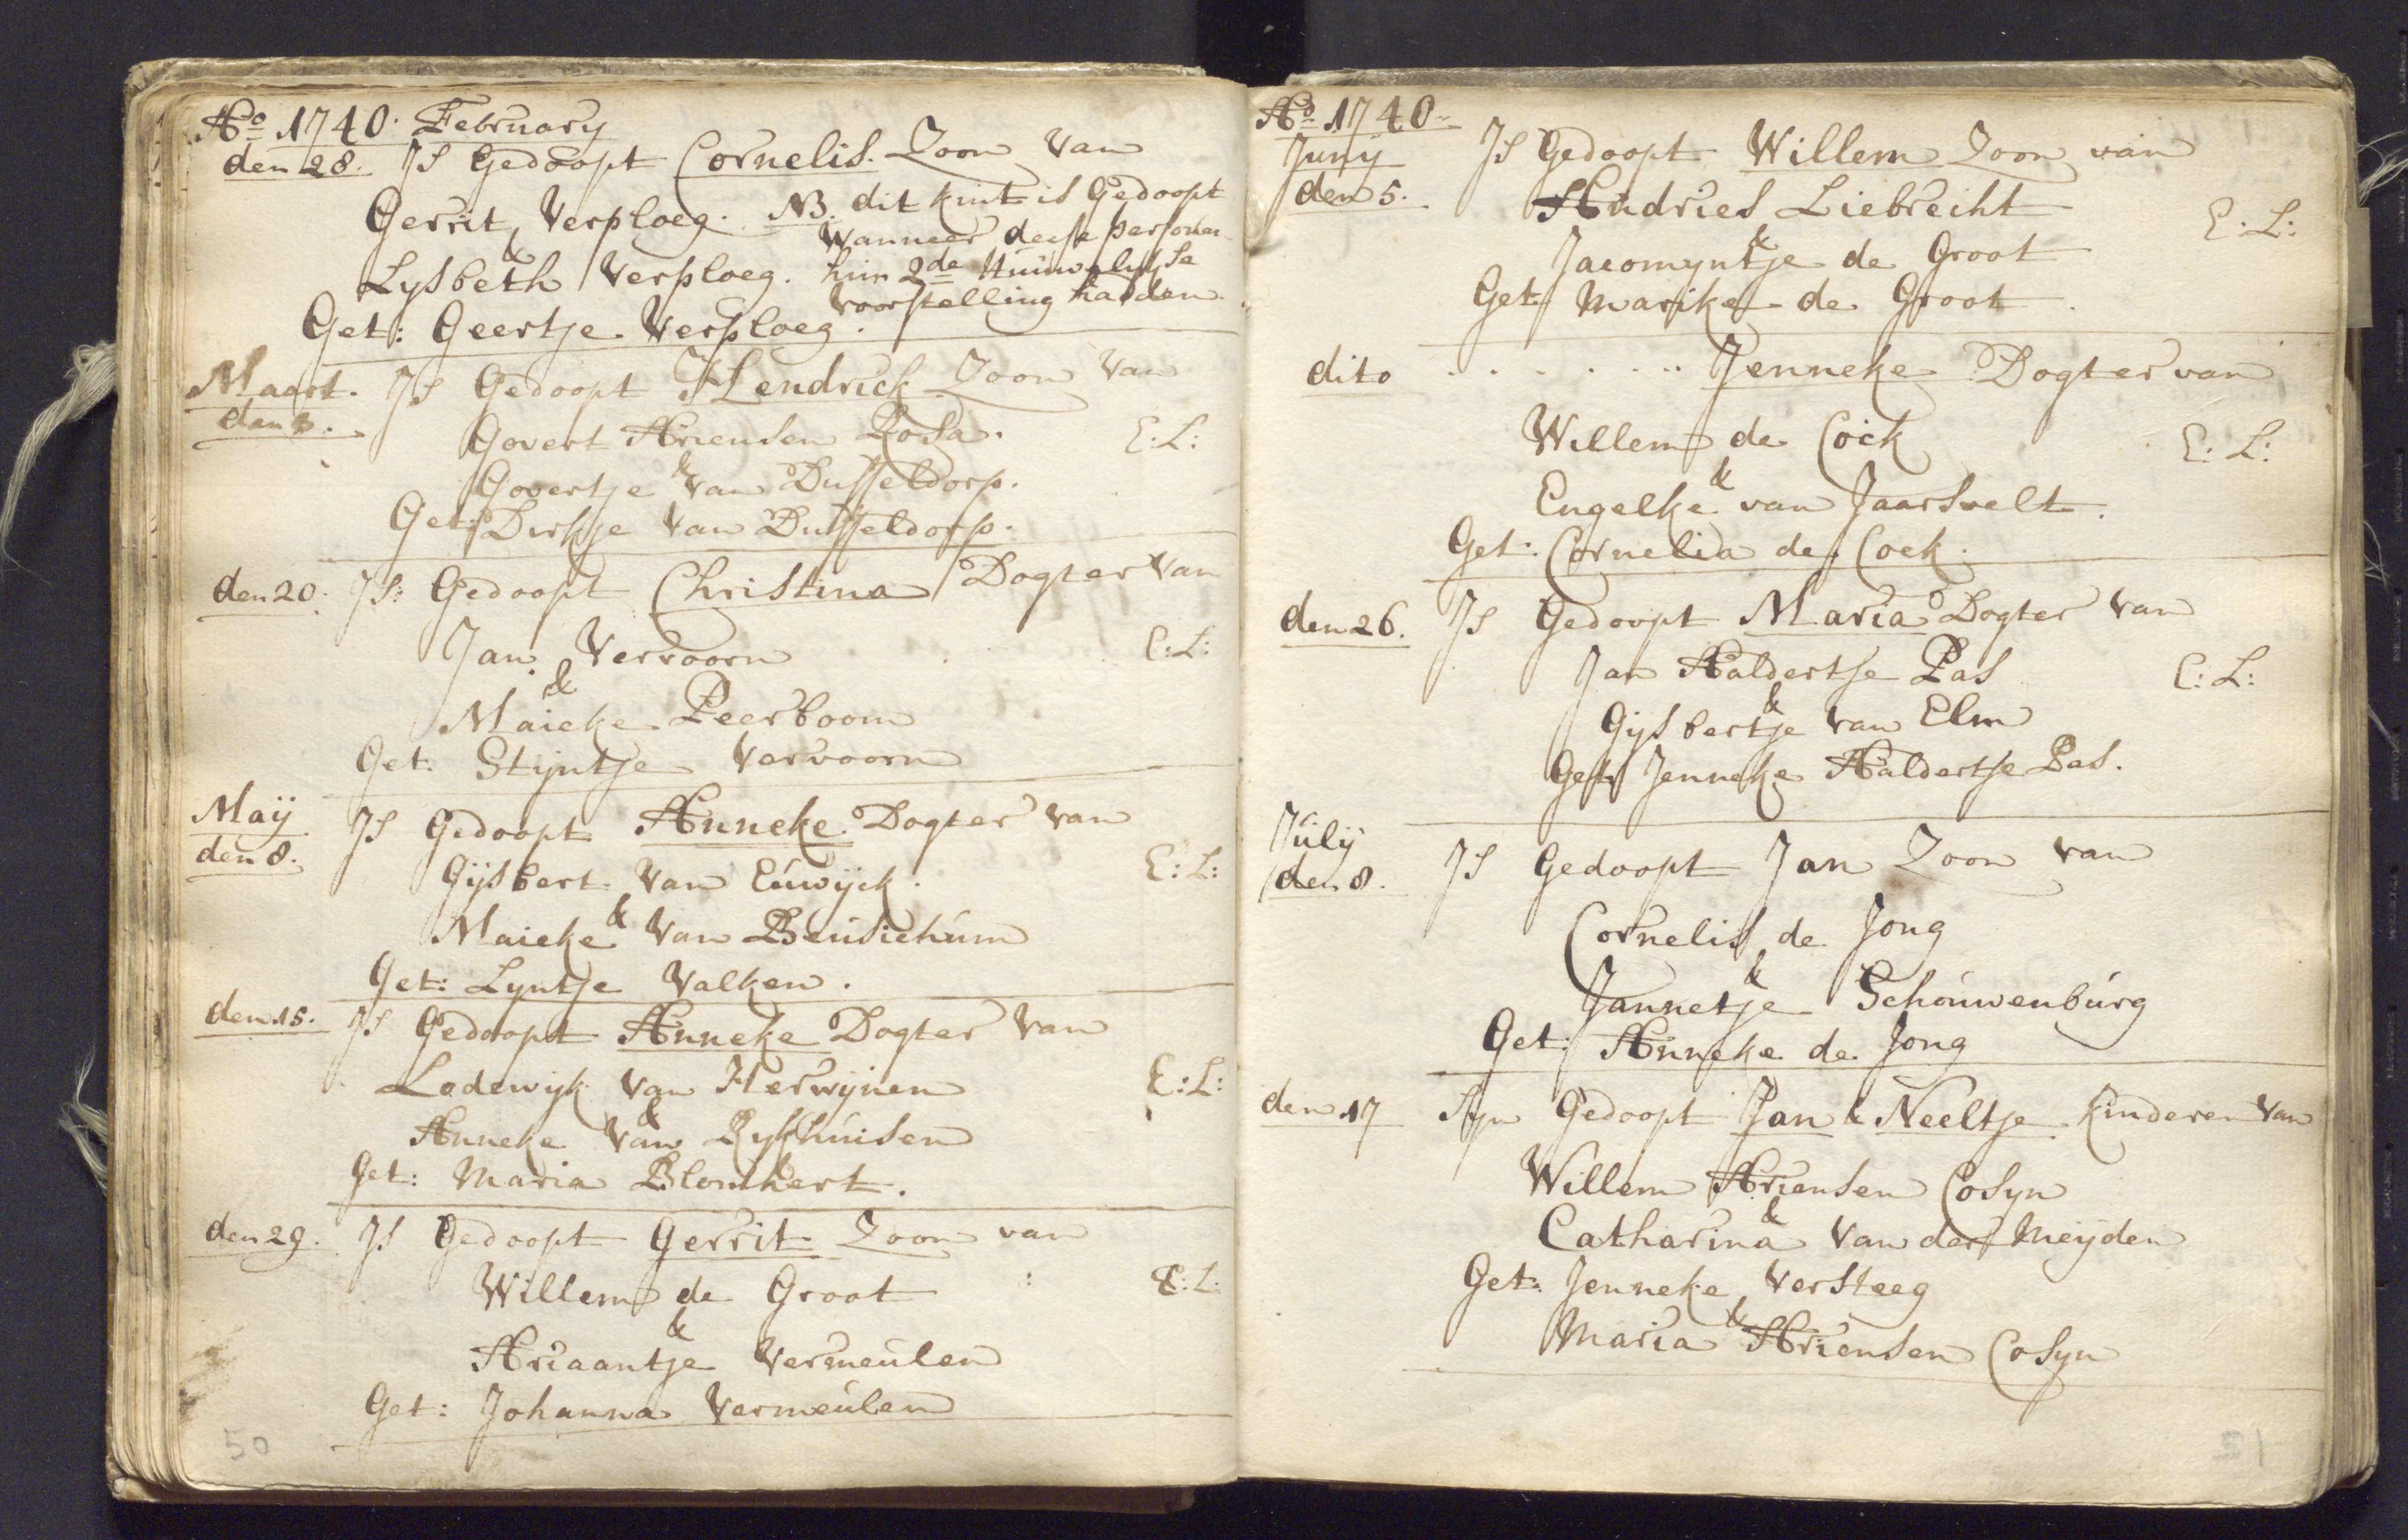 Aº 1740. February
den 28. Is Gedoopt Cornelis. Zoon van
Gerrit Verploeg. NB. dit kint is Gedoopt
& wanneer deese personen
Lysbeth Verploeg. hun 2de Huuwelykse
voorstelling hadden.
Get: Geertje Verploeg.
Maart. Is Gedoopt Hendrick Zoon van
den 3.
Govert Ariensen Rosa. E:L:
&
Govertje van Dusseldorp.
Get: Dirkje van Dusseldorp.
den 20. Is: Gedoopt Christina Dogter van
Jan Vervoorn E:L:
&
Maieke Peerboom
Get: Stijntje Vervoorn
Maÿ Is Gedoopt Anneke Dogter van
den 8.
Gijsbert van Eúwijck. E:L:
&
Maieke van Beúsichúm
Get: Lyntje Valken.
den 15. Is Gedoopt Anneke Dogter van
Lodewijk van Herwijnen E:L:
&
Anneke van Rykhúisen
Get: Maria Blomhert.
den 29. Is Gedoopt Gerrit Zoon van
Willem de Groot E:L:
&
Ariaantje Vermeúlen
Get: Johanna Vermeúlen
50
Aº 1740
Juny Is Gedoopt Willem Zoon van
den 5.
Andries Liebrecht E:L:
&
Jacomyntje de Groot
Get: Marike de Groot.
dito . . . . . . . Jenneke Dogter van
Willem de Cock E:L:
&
Engelke van Jaarsvelt.
Get: Cornelia de Cock.
den 26. Is Gedoopt Maria Dogter van
Jan Aaldertse Pas E:L:
&
Gijsbertje van Elm
Get: Jenneke Aaldertse Pas.
Júlÿ
den 8. Is Gedoopt Jan Zoon van
Cornelis de Jong
&
Jannetje Schoúwenbúrg
Get: Anneke de Jong
den 17 Syn Gedoopt Jan & Neeltje Kinderen van
Willem Ariensen Cosyn
&
Catharina van der Meijden
Get: Jenneke Versteeg
&
Maria Ariensen Cosyn
51